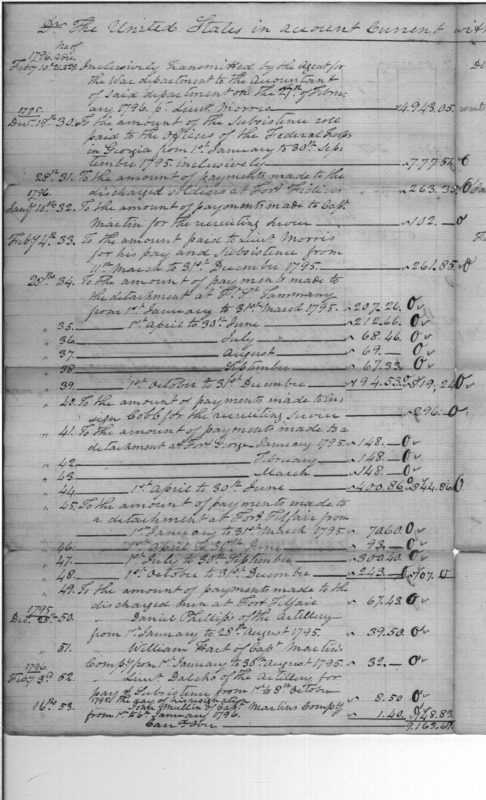 Dr The United States in account Current with
No. of
1796. Vou.
Feby 10th 29. Inclusively transmitted by the Agent for
the War department to the Accountant
of said department on the 27th of Febru
ary 1796. Lieut. Morris 4943.05.
1795.
Dec. 19th 30. To the amount of the Subsistence
paid to the Officers of the Federal troops
in Georgia from 1st January to 30th Sep
tember 1795 inclusively 777.54
28th 31. To the amount of payments made to the
discharged Soldiers at Fort 263.35
1796.
Jany 10th 32. To the amount of payments made to Capt
Martin for the recruiting service 132. 0
Feby 4th 33. To the amount paid to Lieut. Morris
for his pay and Subsistence from
March to 31st December 1795. 261.85.
28th 34. To the amount of payments made to
the detachment at Ft. St. Tammany
from 1st January to 31st March 1795. 207.26. 0
" 35. 1st April to 30th June 212.66. 0
" 36. July 68.46. 0
" 37. August 69. 0
" 38. September 67.33. 0
" 39. 1st October to 31st December 194.53. 819.24 0
" 40. To the amount of payments made to En
sign Cobb for the recruiting service 296. 0
" 41. To the amount of payments made to a
detachment at Fort George January 1795 148. 0
" 42. February 148. 0
" 43. March 148. 0
" 44. 1st April to 30th June 400.86 844.86 0
" 45. To the amount of payments made to
a detachment at Fort Telfair from
1st January to 31st March 1795. 70.60. 0
" 46. 1st April to 30th June 93. 0
" 47. 1st July to 30th September 300.40. 0
" 48. 1st October to 31st December 243. 707. 0
" 49. To the amount of payments made to the
discharged men at Fort Telfair 67.43 0
1795.
Dec. 28th 50. Daniel Phillips of the Artillery
from 1st January to 28th August 1795. 39.50. 0
" 51. William Hart of Capt. Martin's
Compy from 1st January to 30th August 1795. 32. 0
1796.
Feby 3d 52. Lieut. Dalcho of the Artillery for
pay & Subsistence from 1st to 8th October
1795 the day of his resignation 8.50 0
16th 53. John Mullin of Capt. Martins Compy
from 1st to 6th January 1796. 1.40. 148.83
Carrd. Over 9.163.67